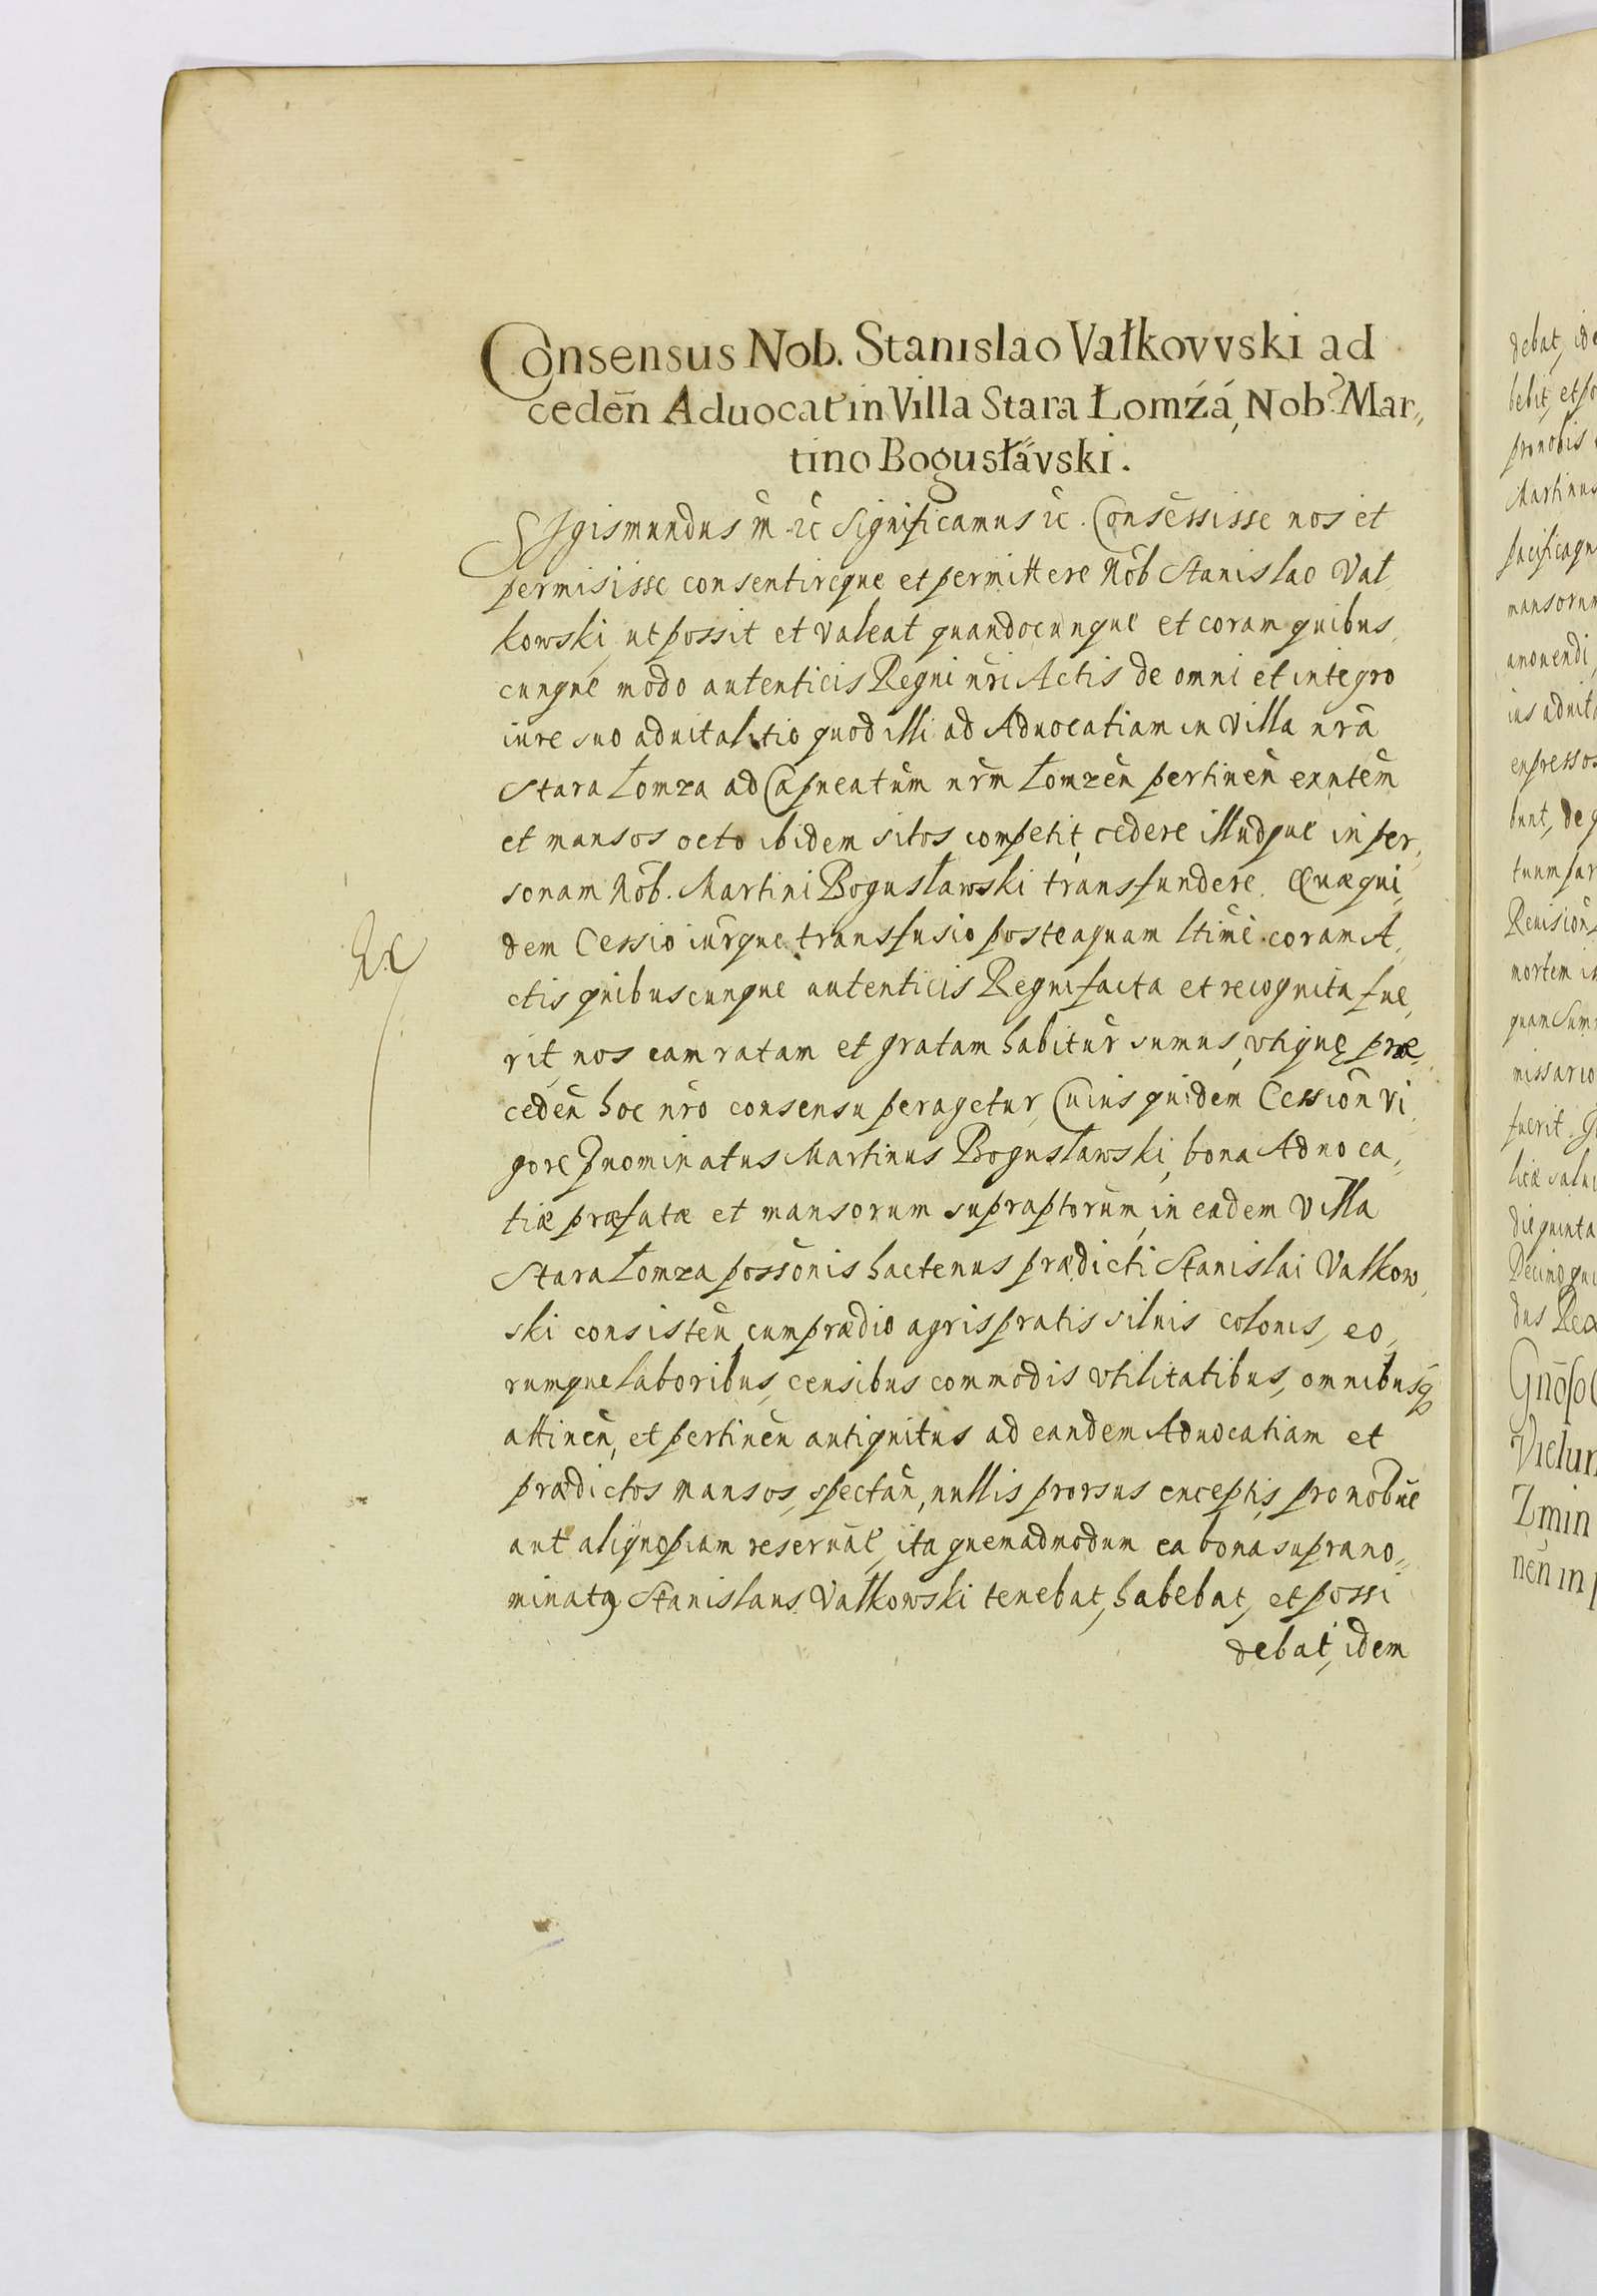 Consensus Nob. Stanislao Vałkovvski ad
cedeñ Aduocat in Villa Stara Łomźá, Nob. Mar„
tino Bogusłávski.
SIgismundus m̃ ꝛc̃ Significamus ꝛc. Consẽssisse nos et
permisisse consentireque et permittere Nob̃ Stanislao Val
kowski, ut possit et valeat quandocunque et coram quibus„
cunque modo autenticis Regni nr̃i Actis de omni et integro
iure suo aduitalitio quod illi ad Aduocatiam in Villa nrã
Stara Łomza ad Capneatũm nrm̃ Łomzeñ pertineñ
et mansos octo ibidem sitos competit, cedere illudque in per„
sonam Nob̃. Martini Bogusławski transfundere. Quæqui„
dem Cessio iur̃que transfusio posteaquam ltimẽ coram A„
ctis quibuscunque autenticis Regni facta et recognita fue„
rit, nos eam ratam et gratam habitur̃ sumus, vtique præ„
cedeñ hoc nr̃o consensu peragetur, Cuius quidem Cessioñ vi„
gore Inominatus Martinus Bogusławski, bona Aduoca„
tiæ præfatæ et mansorum supraptorũm, in eadem Villa
Stara Łomza possõnis hactenus prædicti Stanislai Vałkow„
ski consisteñ, cum prædio agris pratis siluis colonis, eo„
rumque laboribus, censibus commodis vtilitatibus, omnibusq̃
attineñ, et pertineñ antiquitus ad eandem Aduocatiam et
prædictos mansos, spectañ, nullis prorsus exceptis, pro nobũe
aut aliquopiam reseruat̃, ita quemadmodum ea bona suprano„
minatꝯ Stanislaus Vałkowski tenebat, habebat, et possi
debat, idem
debat, ide
bebit, et po
pro nobis
Martinus
pacificaqu
mansorum
amouendi,
ius aduita
expressos
bunt, de q
tuum par
Reuisioñ
mortem i
quam Sum
missario
fuerit. I
licæ salu
die quinta
Decimo qui
dus Rex
Gnõso
Vielun
Zmin
neñ in p